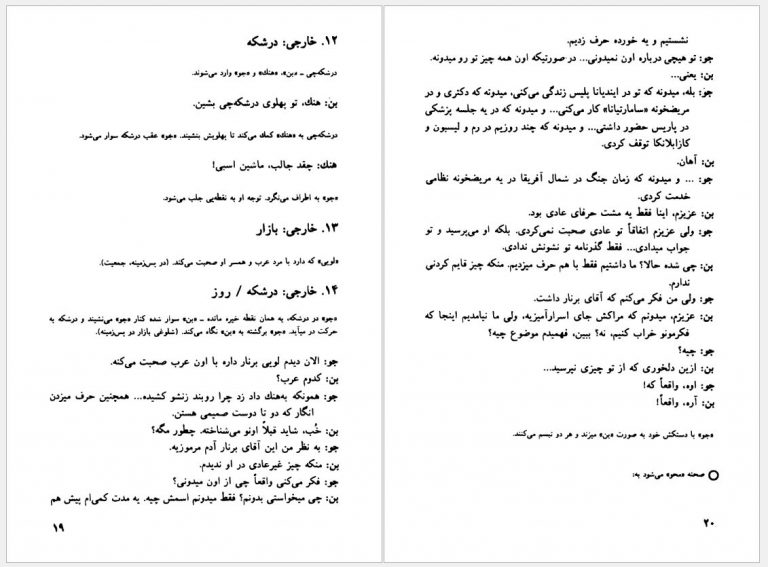 ۱۲. خارجی: درشکه
درشکه‌چی ــ «بن»، «هنك» و «جو» وارد می‌شوند.
بن: هنك، تو پهلوی درشکه‌چی بشین.
درشکه‌چی به «هنك» کمك می‌کند تا پهلویش بنشیند. «جو» عقب درشکه سوار می‌شود.
هنك: چقد جالب، ماشین اسبی!
«جو» به اطراف می‌نگرد. توجه او به نقطه‌یی جلب می‌شود.
۱۳. خارجی: بازار
«لویی» که دارد با مرد عرب و همسر او صحبت می‌کند. (در پس‌زمینه، جمعیت).
۱۴. خارجی: درشکه / روز
«جو» در درشکه، به همان نقطه خیره مانده ــ «بن» سوار شده کنار «جو» می‌نشیند و درشکه به
حرکت در میآید. «جو» برگشته به «بن» نگاه می‌کند. (شلوغی بازار در پس‌زمینه).
جو: الان دیدم لویی برنار داره با اون عرب صحبت می‌کنه.
بن: کدوم عرب؟
جو: همونکه به‌هنك داد زد چرا روبند زنشو کشیده... همچنین حرف میزدن
انگار که دو تا دوست صمیمی هستن.
بن: خُب، شاید قبلاً اونو می‌شناخته. چطور مگه؟
جو: به نظر من این آقای برنار آدم مرموزیه.
بن: منکه چیز غیرعادی در او ندیدم.
جو: فکر می‌کنی واقعاً چی از اون میدونی؟
بن: چی میخواستی بدونم؟ فقط میدونم اسمش چیه. یه مدت کمی‌ام پیش هم
۱۹
نشستیم و یه خورده حرف زدیم.
جو: تو هیچی درباره اون نمیدونی... در صورتیکه اون همه چیز تو رو میدونه.
بن: یعنی...
جو: بله، میدونه که تو در ایندیانا پلیس زندگی می‌کنی، میدونه که دکتری و در
مریضخونه «سامارتیانا» کار می‌کنی... و میدونه که در یه جلسه پزشکی
در پاریس حضور داشتی... و میدونه که چند روزیم در رم و لیسبون و
کازابلانکا توقف کردی.
بن: آهان.
جو: ... و میدونه که زمان جنگ در شمال آفریقا در یه مریضخونه نظامی
خدمت کردی.
بن: عزیزم، اینا فقط یه مشت حرفای عادی بود.
جو: ولی عزیزم اتفاقاً تو عادی صحبت نمی‌کردی. بلکه او می‌پرسید و تو
جواب میدادی... فقط گذرنامه تو نشونش ندادی.
بن: چی شده حالا؟ ما داشتیم فقط با هم حرف میزدیم. منکه چیز قایم کردنی
ندارم.
جو: ولی من فکر می‌کنم که آقای برنار داشت.
بن: عزیزم، میدونم که مراکش جای اسرارآمیزیه، ولی ما نیامدیم اینجا که
فکرمونو خراب کنیم، نه؟ ببین، فهمیدم موضوع چیه؟
جو: چیه؟
بن: ازین دلخوری که از تو چیزی نپرسید...
جو: اوه، واقعاً که!
بن: آره، واقعاً!
«جو» با دستکش خود به صورت «بن» میزند و هر دو تبسم می‌کنند.
صحنه «محو» می‌شود به:
۲۰